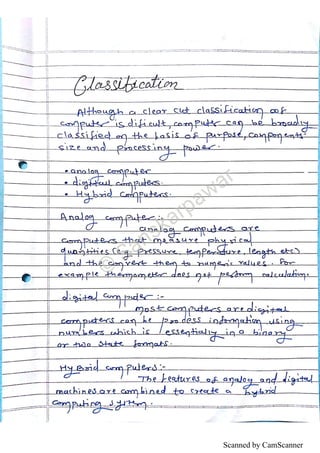 Classification
Although a clear cut classification of
computer is dificult, computer can be broadly
classified on the basis of purpose, components
size and processing power.
• analog computer
• digital computers.
• Hybrid computers.
Analog computer :-
analog computers are
computers that measure physical
quantities (e.g. pressure, temperature, length etc)
and the convert them to numeric values. For
example thermometer does not perform calculation.
digital computer :-
most computers are digital
computers can be process information using
numbers which is essentially in a binary
or two state formats.
Hybrid computers :-
The features of analog and digital
machines are combined to create a hybrid
computing system.
Scanned by CamScanner